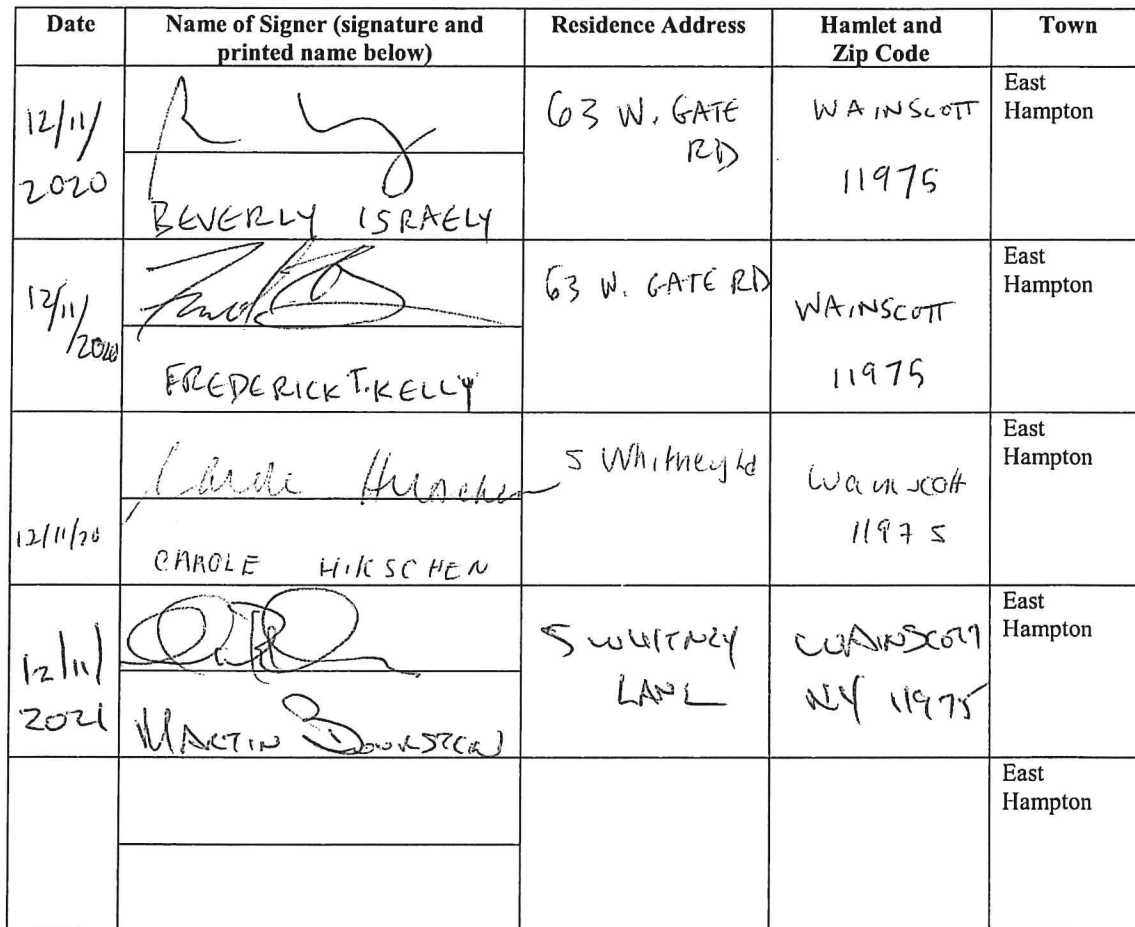 Date
Name of Signer (signature and
printed name below)
Residence Address
Hamlet and
Zip Code
Town
12/11/
2020
BEVERLY ISRAELY
63 W. GATE
RD
WAINSCOTT
11975
East
Hampton
12/11/
2020
FREDERICK T. KELLY
63 W. GATE RD
WAINSCOTT
11975
East
Hampton
12/11/20
Carole
CAROLE HIRSCHEN
5 Whitney Ln
Wainscott
11975
East
Hampton
12/11/
2021
MARTIN
5 WHITNEY
LANE
WAINSCOTT
NY 11975
East
Hampton
East
Hampton